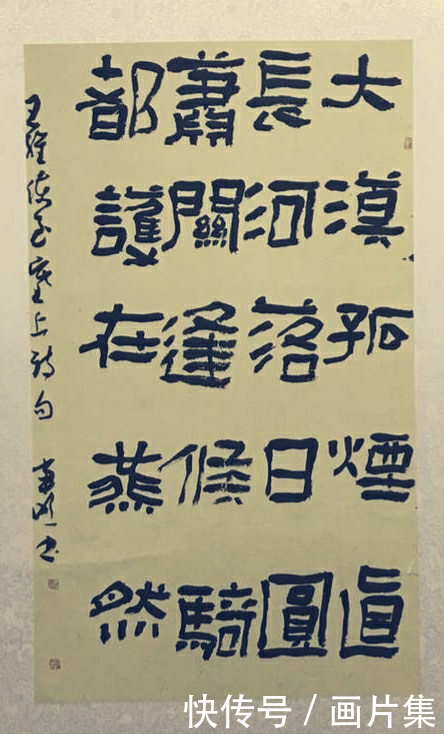 大漠孤煙直
長河落日圓
蕭關逢候騎
都護在燕然
王維使至塞上詩句 书
快传号 / 画片集